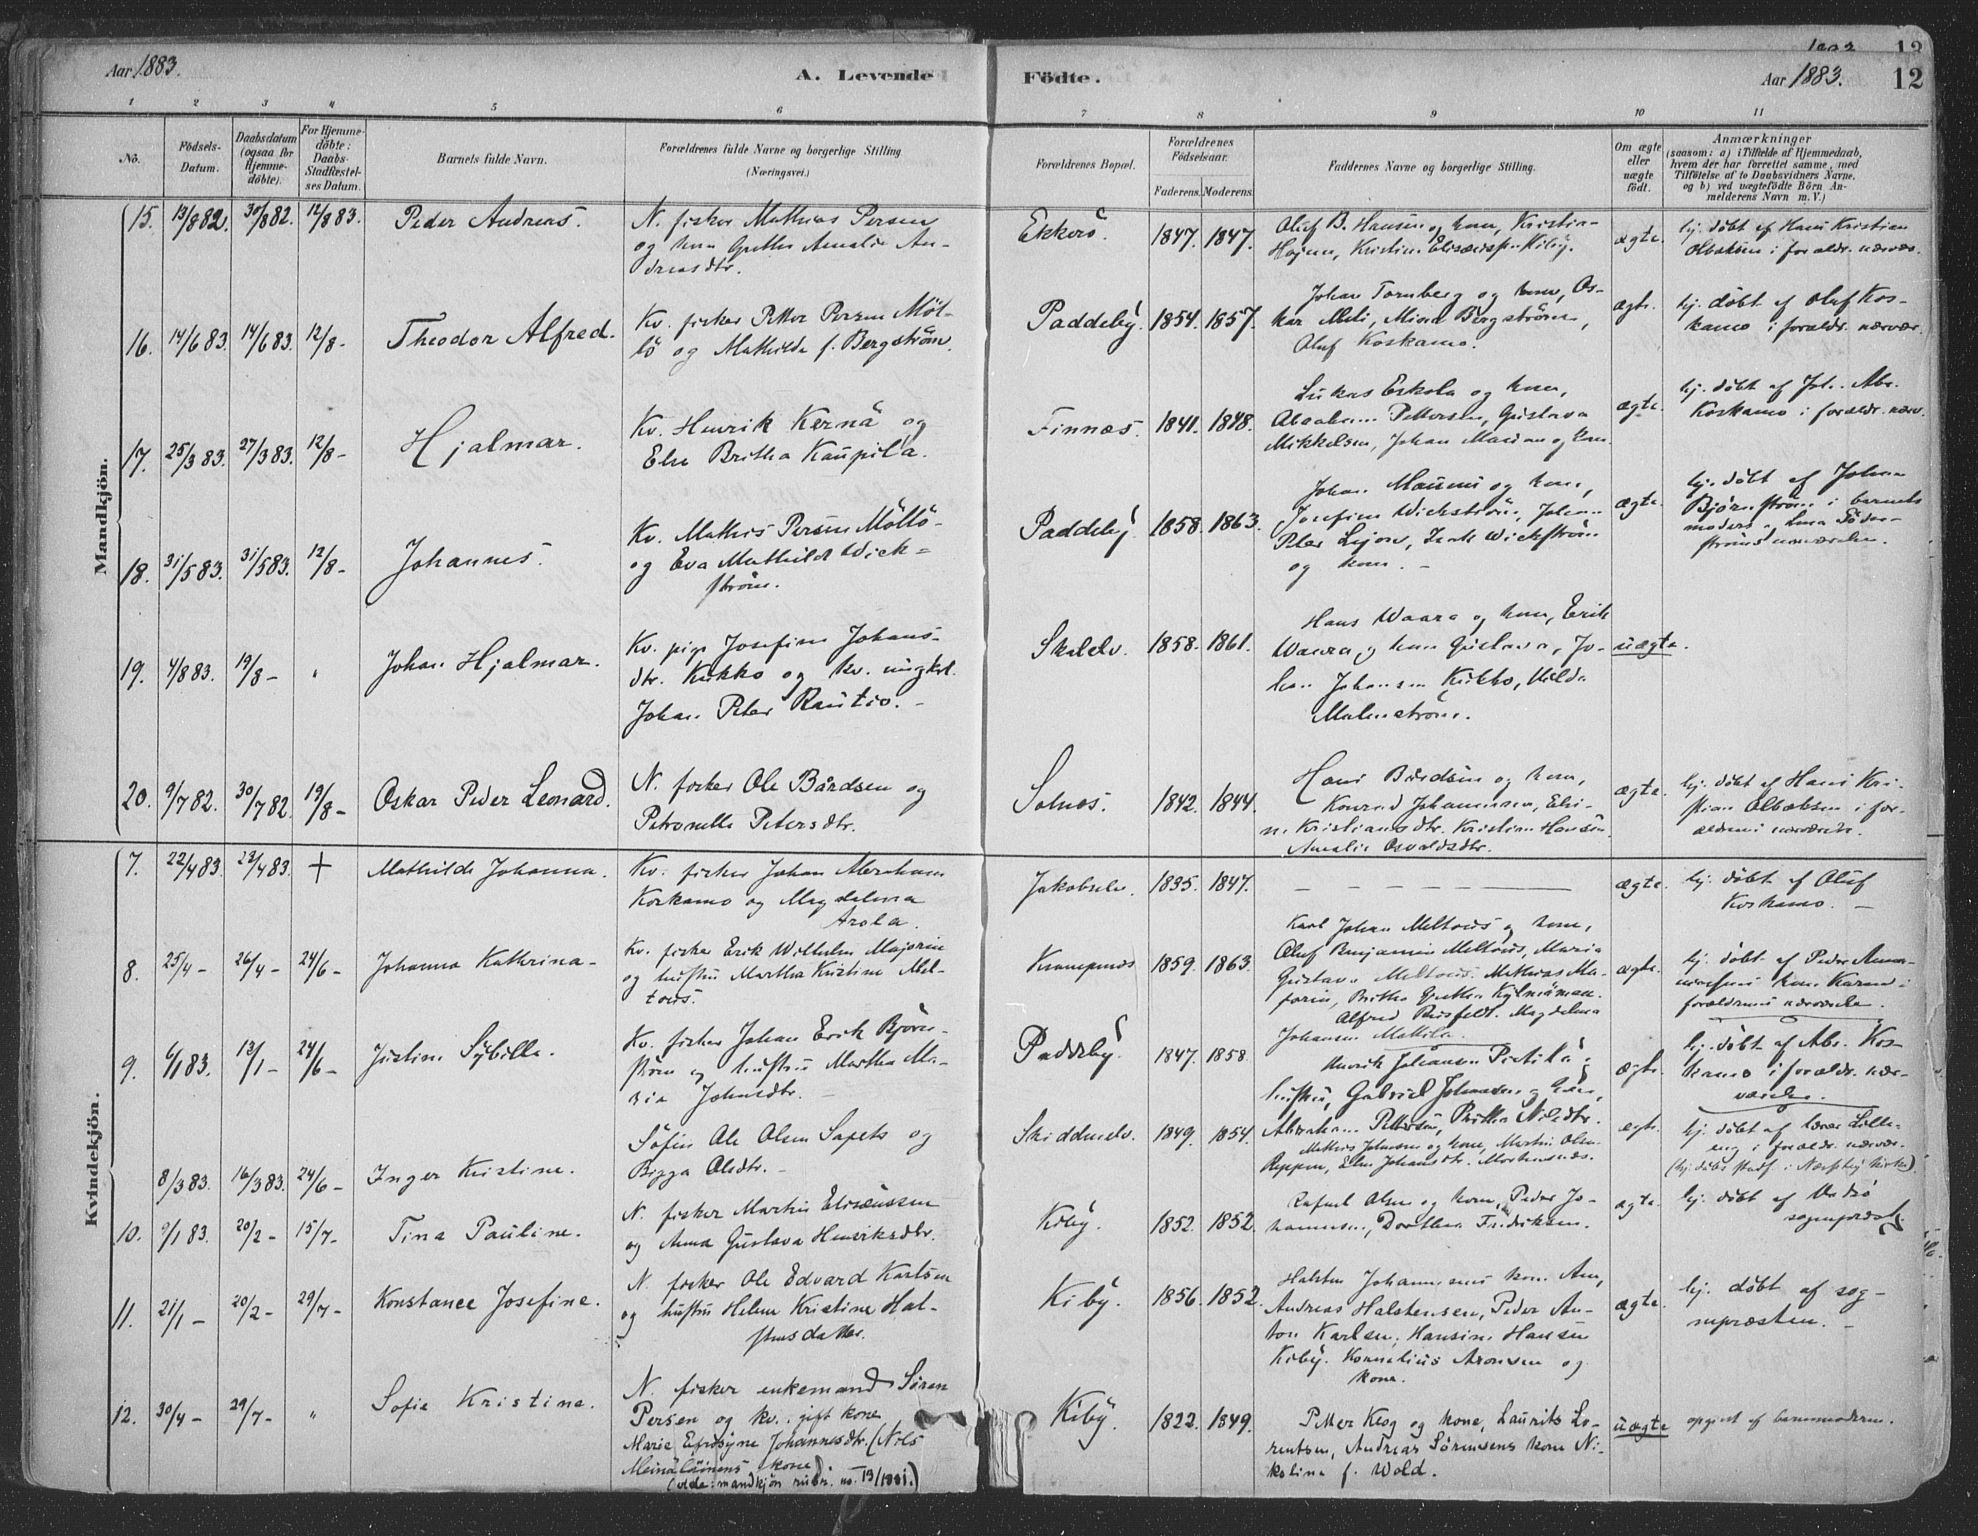 Aar 1883.
A. Levende
Födte.
Aar 1883.
12
1 2 3 4 5 6 7 8 9 10 11
No.
Födsels-
Datum.
Daabsdatum
(ogsaa for
Hjemme-
döbte).
For Hjemme-
döbte:
Daabs-
Stadfæstel-
ses Datum.
Barnets fulde Navn.
Forældrenes fulde Navne og borgerlige Stilling
(Næringsvei.)
Forældrenes Bopæl.
Forældrenes
Födselsaar.
Faderens. Moderens.
Faddernes Navne og borgerlige Stilling.
Om ægte
eller
uægte
födt.
Anmærkninger
(saasom: a) i Tilfælde af Hjemmedaab,
hvem der har forrettet samme, med
Tilföielse af to Daabsvidners Navne,
og b) ved uægtefödte Börn An-
melderens Navn m. V.)
Mandkjön.
15. 13/8 82. 30/8 82. 12/8 83. Peder Andreas.
N. fisker Mathias Persen
og kone Grethe Amalie An-
dreasdtr.
Ekkerö. 1847. 1847.
Oluf B. Hansen og kone, Kristin-
ægte.
hj. døbt af Hans Kristian
i forældr. nærvær.
16. 14/6 83. 14/6 83. 12/8- Theodor Alfred.
Kv. fisker Petter Persen Möl-
lö og Mathilde f. Bergström.
Paddeby. 1854. 1857.
Johan Tornberg og kone, Os-
kar Meli, Mina Bergström,
Oluf Koskamo.
ægte.
hj. døbt af Oluf Kos-
kamo i forældr. nærvær.
17. 25/3 83. 27/3 83. 12/8- Hjalmar.
Kv. Henrik Kernä og
Else Britha Kaupila.
Finnæs. 1841. 1848.
Lukas Eskola og kone,
Abraham Pettersen, Gustava
Mikkelsen, Johan og kone
ægte.
hj. døbt af Joh. Abr.
Koskamo i forældr. nærv.
18. 31/5 83. 31/5 83. 12/8- Johannes.
Kv. Mathis Persen Möllö
og Eva Mathilde Wick=
ström.
Paddeby. 1858. 1863.
Johan og kone,
Josefine Wickström, Johan
Peter Lejon, Isak Wickström
og kone. -
ægte.
hj. døbt af Johan
Bjørnström i barnets
moders og Lina Söder-
ströms nærværelse.
19. 4/8 83. 19/8- " Johan Hjalmar.
Kv. pige Josefine Johans-
dtr. Kukko og kv. ungkrl.
Johan Peter Rautio. -
Skalelv. 1858. 1861.
Hans Waara og kone, Erik
Waara og kone Gustava, Jo-
han Johansen Kukko, Hilda
Malmström.
uægte.
20. 9/7 82. 30/7 82. 19/8- Oskar Peder Leonard.
N. fisker Ole Bårdsen og
Petronelle Petersdtr.
Solnæs. 1842. 1844.
Hans Bårdsen og kone,
Konrad Johannesen, Eli-
n. Kristiansdtr. Kristian Hansen
Amalie Osvaldsdtr.
ægte.
hj. døbt af Hans Kri-
stian Olbæksen i for-
ældrenes nærværelse.
Kvindekjön.
7. 22/4 83. 23/4 83. + Mathilde Johanna.
Kv. fisker Johan Abraham
Koskamo og Magdalena
Arola.
Jakobselv. 1835. 1847.
— — — — — —
ægte.
hj. døbt af Oluf
Koskamo. —
8. 25/4- 26/4- 24/6- Johanna Kathrina-
Kv. fisker Erik Wilhelm Majorin
og hustru Martha Kristine Mel-
tous.
Krampenæs 1859. 1863.
Karl Johan Meltous og kone,
Oluf Benjamin Meltous, Maria
Gustava Meltous. Mathias Ma-
jorin, Britha Grethe Kylmänan.
Alfred Magdalena
Johansen Mattila.
ægte.
hj. døbt af Peder
kone Karen i
forældrenes nærværelse.
9. 6/1 83. 13/1- 24/6- Justine Sybilla.
Kv. fisker Johan Erik Björn-
ström og hustru Martha Ma-
ria Johnsdtr. -
Paddeby. 1847. 1858.
Henrik Johansen Pietilä og
hustru, Gabriel Johnsen og kone,
Abraham Pettersen, Britha Nilsdtr.
ægte.
hj. døbt af Abr. Kos-
kamo i forældr. nær-
værelse.
8/3 83. 16/3 83. 24/6- Inger Kristine.
Söfin Ole Olsen Sapets og
Bigga Olsdtr. -
Skiddenelv. 1849. 1854.
Mathis Johnsen og kone, Martin Olsen
Reppen, Ellen Johansdtr. Mortensnæs.
ægte.
hj. døbt af lærer
i forældr. nærvær.
(hj. døbs stadf. i Næsseby kirke).
10. 9/1 83. 20/2- 15/7- Tina Pauline.
N. fisker Martin Elisæussen
og Anna Gustava Henriksdtr.
Kiby. 1852. 1852.
Rafael Olsen og kone, Peder Jo-
hannesen, Dorthea Fredriksen.
ægte.
hj. døbt af Vadsö
sognepræst.
11. 21/1- 20/2- 29/7- Konstance Josefine.
N. fisker Ole Edvard Karlsen
og hustru Helene Kristine Hal-
stensdatter.
Kiby. 1856. 1852.
Halsten Johannesens kone Ane,
Andreas Halstensen, Peder An-
ton Karlsen, Hansine Hansen
Kiby. Kornelius Aronsen og
kone.
ægte.
hj. døbt af sog-
nepræsten. —
12. 30/4- 29/7- " Sofie Kristine.
N. fisker enkemand Sören
Persen og kv. gift kone
Marie Eufrosyne Johannesdtr. (Nils
Meinäläinens kone).
(vide: mandkjön rubr. no. 13/1881.)
Kiby. 1822. 1849.
Petter Keog og kone, Laurits Lo-
rentsen, Andreas Sörensens kone Ni-
kolina f. Wold.
uægte
opgivet af barnemoderen.